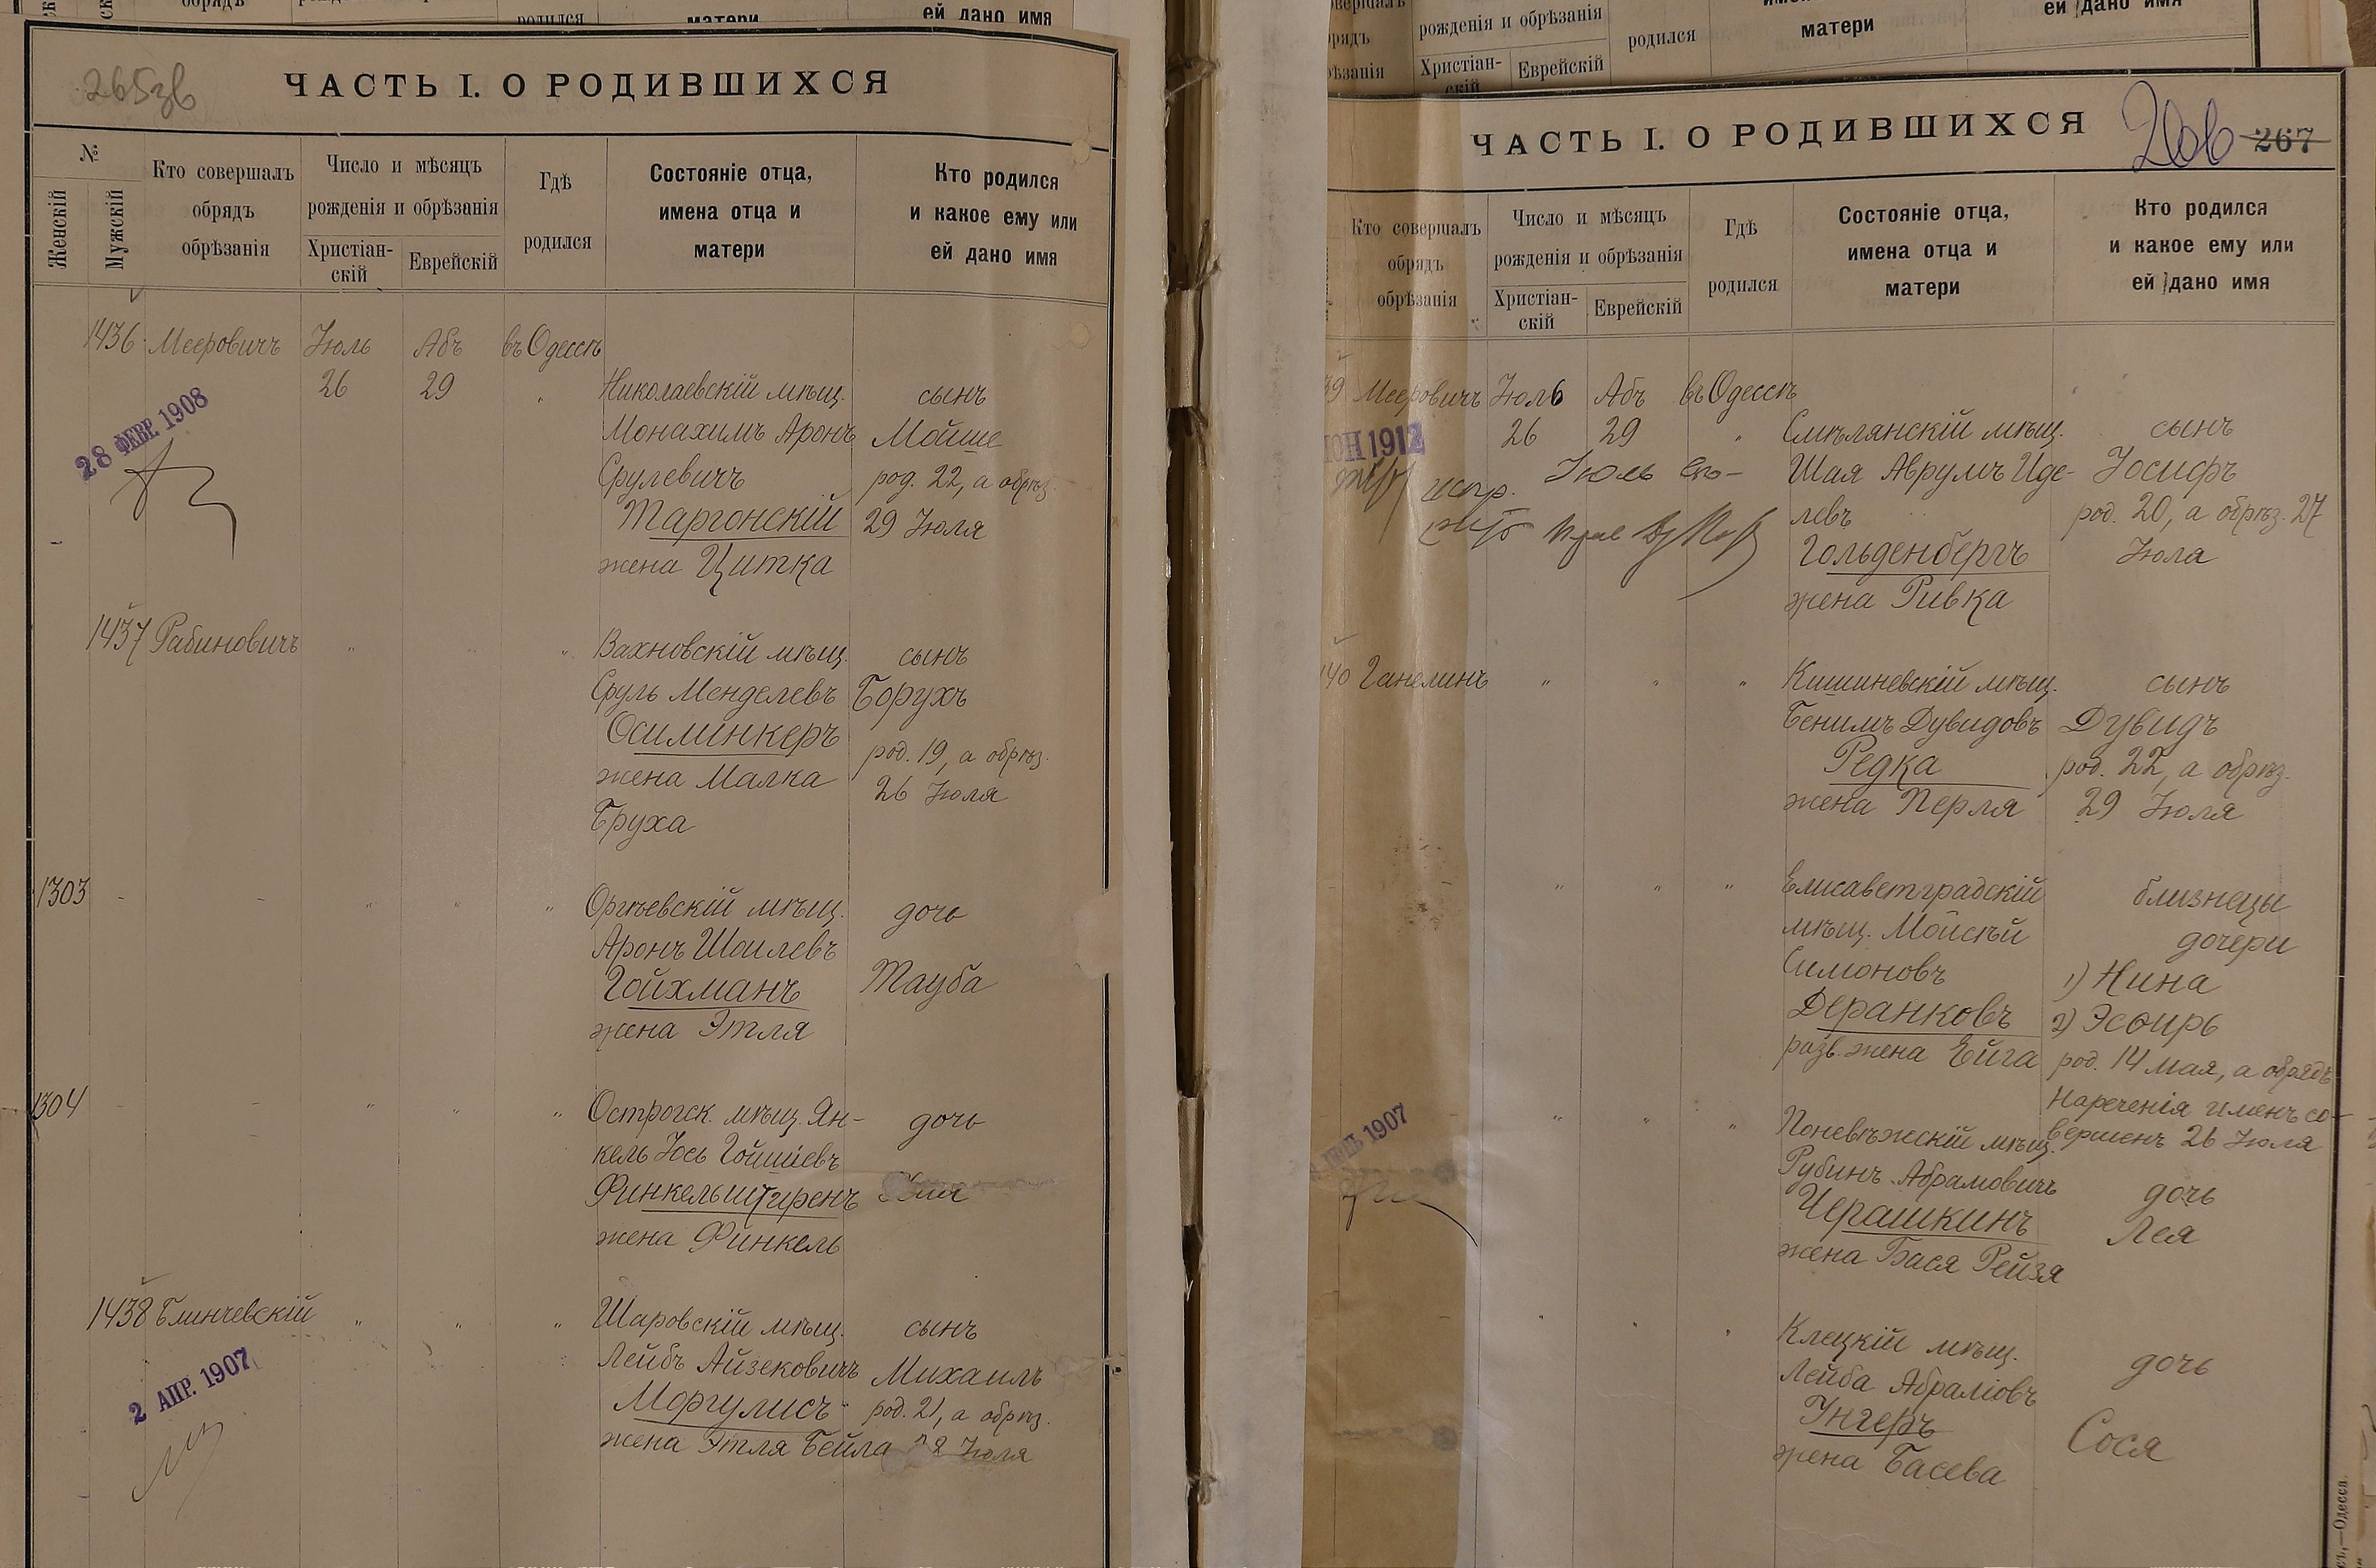 обрядъ
родился
матери
ей дано имя
265зв
ЧАСТЬ I. О РОДИВШИХСЯ
№
Женскій
Мужскій
Кто совершалъ
обрядъ
обрѣзанія
Число и мѣсяцъ
рожденія и обрѣзанія
Христіан-
скій
Еврейскій
Гдѣ
родился
Состояніе отца,
имена отца и
матери
Кто родился
и какое ему или
ей дано имя
1436 Мееровичъ Іюль Абъ въ Одессѣ
26 29 " Николаевскій мѣщ. сынъ
28 ФЕВР. 1908
Монахимъ Аронъ Мойше
Срулевичъ род. 22, а обрѣз.
Таргонскій 29 Іюля
жена Цитка
1437 Рабиновичъ " " " Вахновскій мѣщ. сынъ
Сруль Менделевъ Борухъ
Осиминкеръ род. 19, а обрѣз.
жена Малка 26 Іюля
Бруха
1303 - - " " " Оргѣевскій мѣщ. дочь
Аронъ Шоилевъ
Гойхманъ Тауба
жена Этля
1304 - - " " " Острогск. мѣщ. Ян- дочь
кель Іось
Финкельштиренъ
жена Финкель
1438 Блинчевскій " " " Шаровскій мѣщ. сынъ
Лейбъ Айзековичъ Михаилъ
2 АПР. 1907
Моргулисъ род. 21, а обрѣз.
жена Этля Бейла 28 Іюля
рожденія и обрѣзанія
родился
матери
ей дано имя
рядъ
Христіан-
скій
Еврейскій
ЧАСТЬ I. О РОДИВШИХСЯ
266 267
Кто совершалъ
обрядъ
обрѣзанія
Число и мѣсяцъ
рожденія и обрѣзанія
Христіан-
скій
Еврейскій
Гдѣ
родился
Состояніе отца,
имена отца и
матери
Кто родился
и какое ему или
ей дано имя
39 Мееровичъ Іюль Абъ въ Одессѣ
26 29 " Смѣлянскій мѣщ. сынъ
ІЮН 1912
испр. Іюль
Шая Аврумъ Иде- Іосифъ
левъ род. 20, а обрѣз. 27
Гольденбергъ Іюля
жена Ривка
140 Ганелинъ " " " Кишиневскій мѣщ. сынъ
Бенимъ Дувидовъ Дувидъ
Редка род. 22, а обрѣз.
жена Перля 29 Іюля
" " " Елисаветградскій близнецы
мѣщ. Мойсѣй дочери
Симоновъ 1) Нина
Деранковъ 2) Эсѳирь
разв. жена Ейга род. 14 мая, а обрядъ
нареченія именъ со-
вершенъ 26 Іюля
1907
" " " Поневѣжскій мѣщ.
Рубинъ Абрамовичъ дочь
Черашкинъ Лея
жена Бася Рейзя
" " " Клецкій мѣщ.
Лейба Абрамовъ дочь
Унгеръ Сося
жена Басева
Одесса.